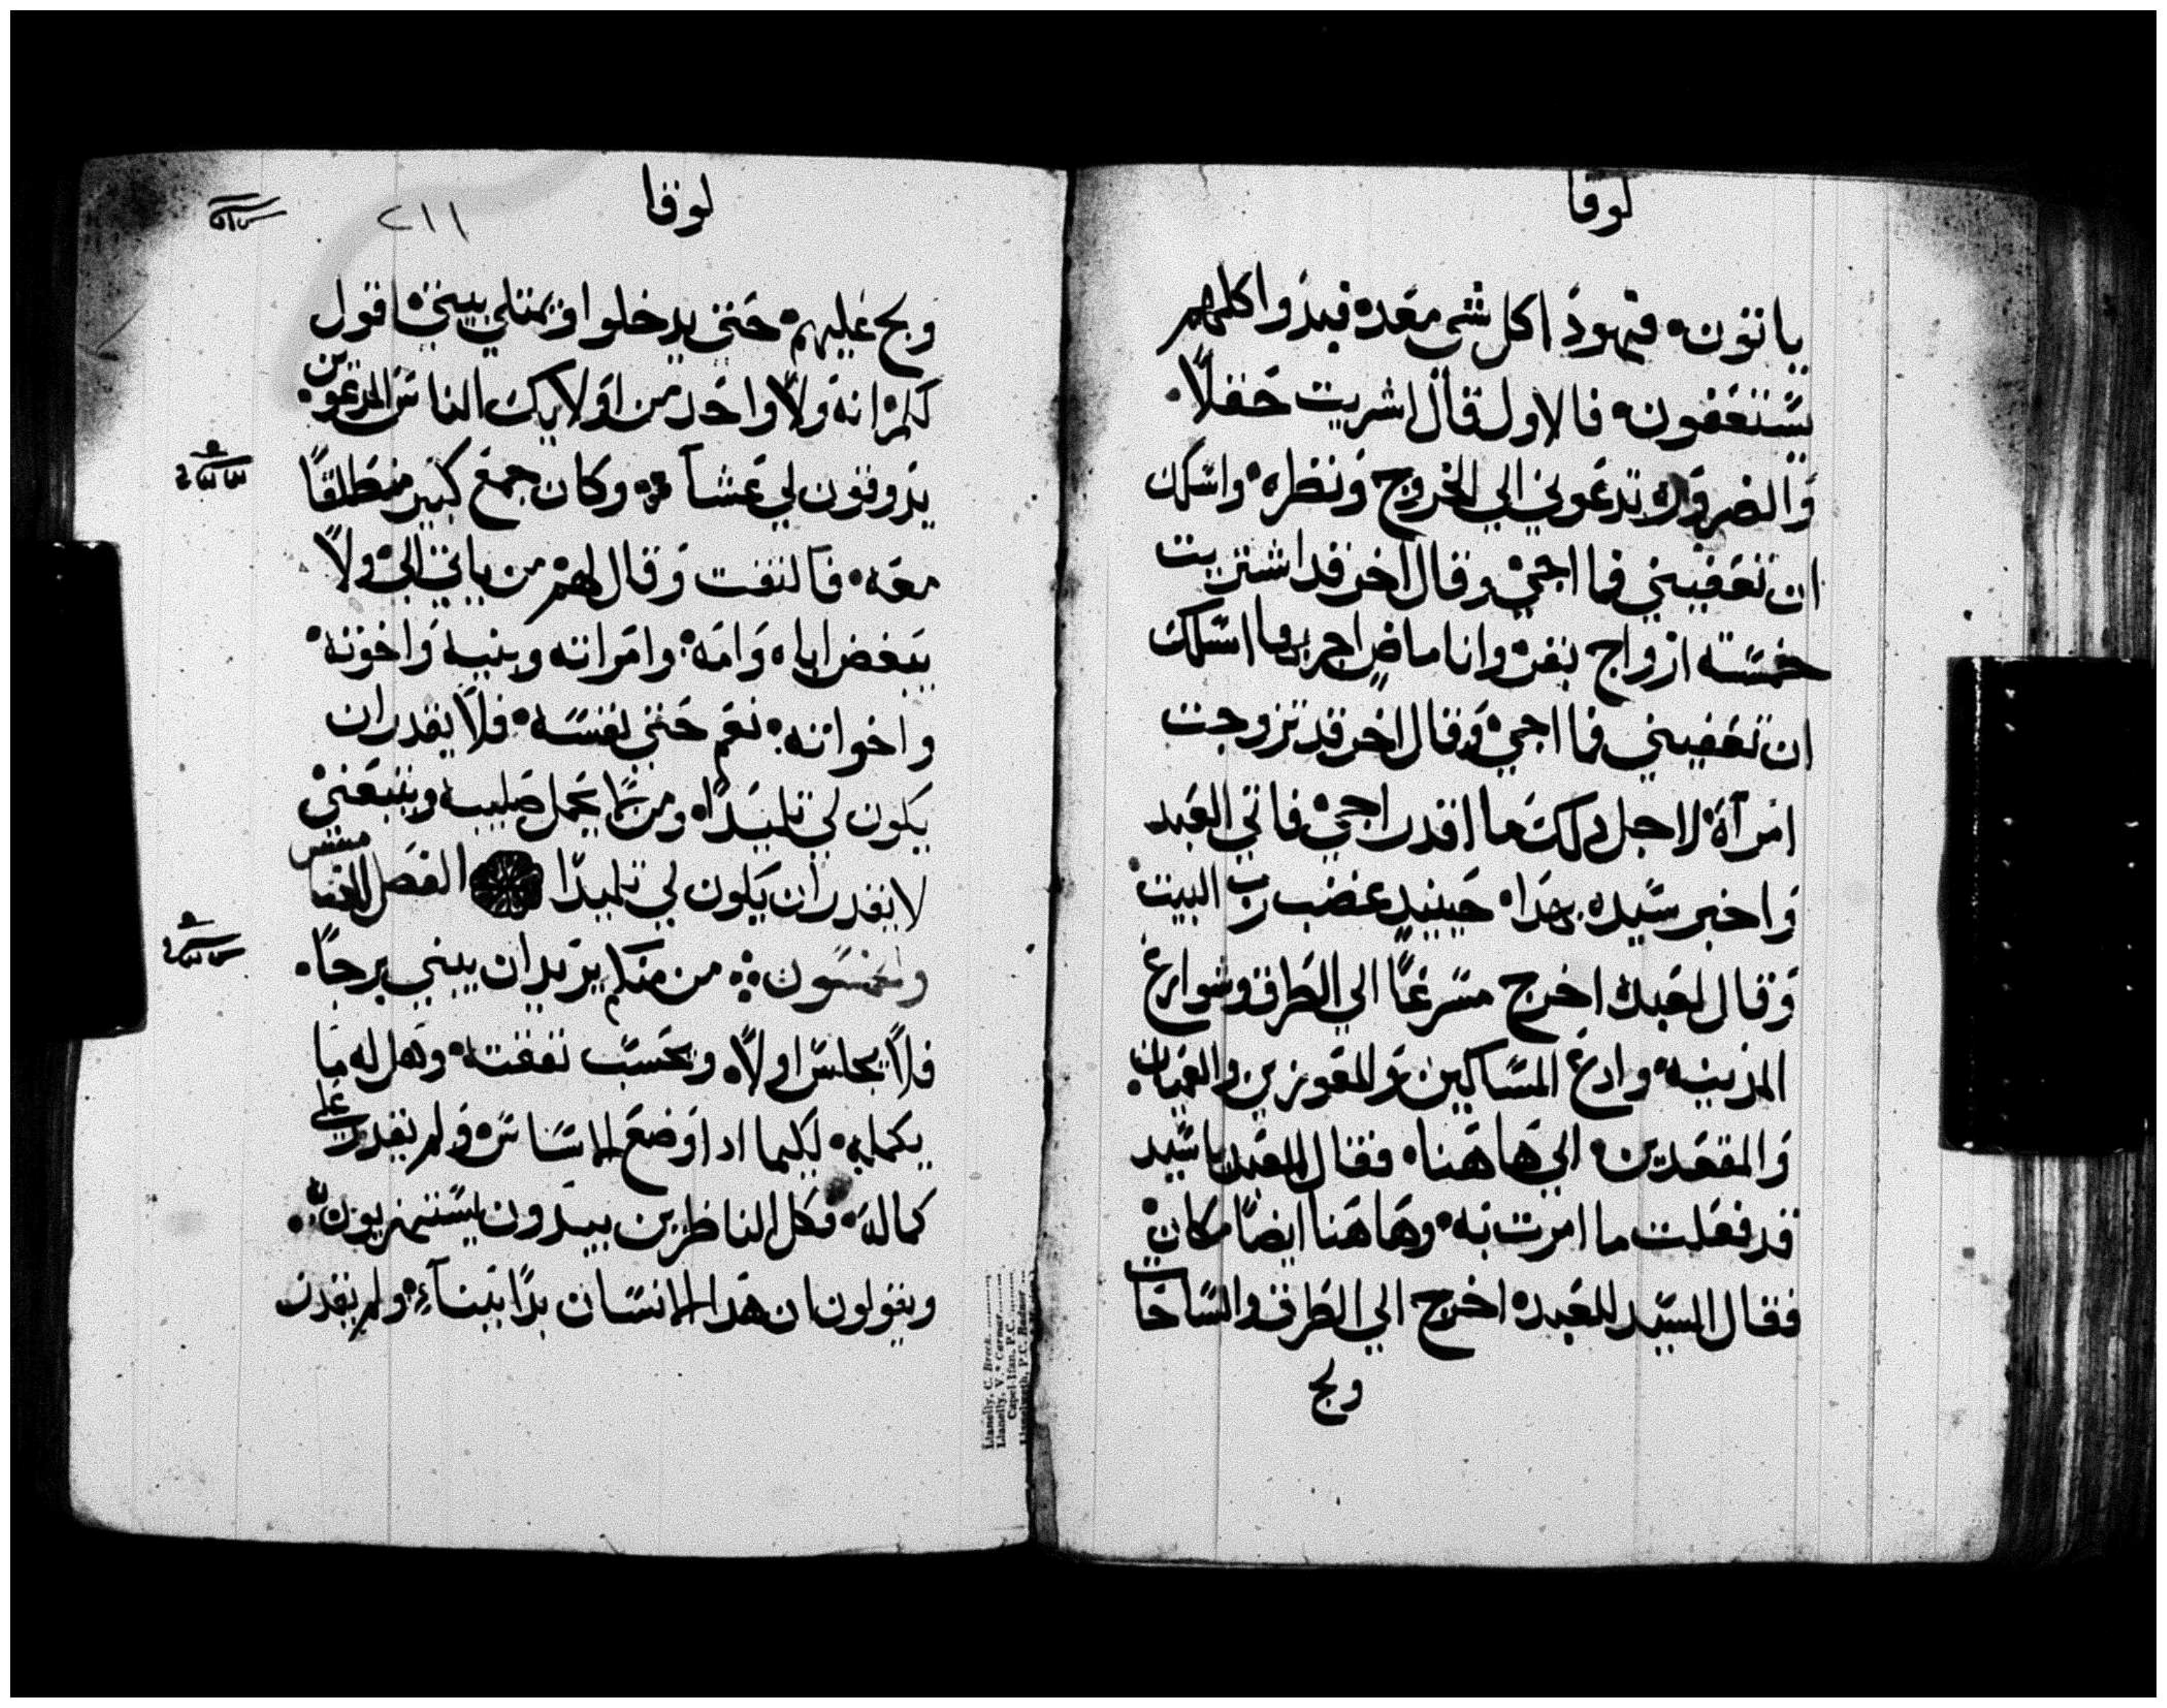 لوقا
ياتون، فهودَا كل شي معَده فبدوا كلهم
يسَتنعَفون، فالاول قال اشريت حَقلاً.
وَالضروَره تدعَوني الي الخروج وَنظره، واسَلك
ان تعَفيني فما اجي، وقال اخر قد اشتريت
خمسَته ازواج بقر، وانا ماضٍ اجربها اسَلك
ان تعَفيني فما اجي، وَقال اخر قد تزوجت
امرآة، لاجل دلك ما اقدر اجي، فاتي العَبد
وَاخبر سَيده بهدَا، حَينيدٍ غضب رب البيت
وَقال لعَبده اخرج مسَرعاً الي الطَرق وشوارع
المدينه، وادع المسَاكين وَالمعَوزين والعَميان.
وَالمقعَدين، الي هَاهَنا، فقال العَبد ياسَيد
قد فعَلت ما امرت به، وهَاهَنا ايضاً مكان
فقال السَيد للعَبد، اخرج الي الطَرق والسَاحات
ولج
لوقا
٢١١
ولج عَليهم، حَتي يدخلوا ويمتلي بيتي، اقول
لكم انه وَلا واحَد من اوَلايك الناسَ المدعَوين
يدَوقون لي عَشآ وكان جمعَ كبير منطَلقاً
معَه، فالتفت وَقال لهم من ياتي الي، ولاَ
يبَغض اباه وَامَه، وامَراته وبنيه وَاخوته،
واخواته: نعَم حَتي نفسَه، فلاَ يقدر ان
يكون لي تلميدَاً، ومن لاَ يحَمل صَليبه ويتبعَني
لا يقدر ان يكون لي تلميدًا الفصَل
والخمسَون من منكم يرَيد ان يبني برجاً.
فلاَ يجلسَ اولاً، ويحَسَب نفقته، وهَل له مَا
يكمله، لكيما ادا وَضعَ الاسَاسَ، وَلم يقدر علي
كماله، فكل الناظرين يبيدَون يسَتهزيون به.
ويقولون ان هَدا الانسَان بدَا ببَنآءٍ، ولم يقدر